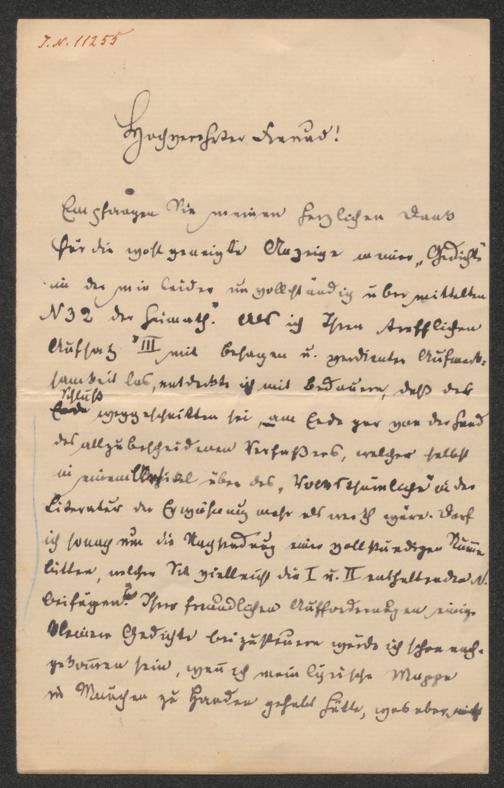 J. N. 11255
Hochverehrter Freund!
Empfangen Sie meinen herzlichen Dank
für die wohlgeneigte Anzeige meiner „Gedichte“
in der mir leider unvollständig übermittelten
N 32 der Heimath“. Als ich Ihren trefflichen
Aufsatz III mit Behagen u. verdienter Aufmerk-
samkeit las, entdeckte ich mit Bedauern, daß der
Schluß
Ende weggeschnitten sei, am Ende gar von der Hand
des allzubescheidenen Verfaßers, welcher selbst
in einem Artikel über das „Volksthümliche“ in der
Literatur der Erwähnung mehr als werth wäre. Darf
ich sonach um die Nachsendung einer vollständigen Nummer
bitten, welcher Sie vielleicht die I u. II enthaltenden N.
beifügen? Ihrer freundlichen Aufforderungen einige
kleinere Gedichte beizusteuern würde ich schon nach-
gekommen sein, wenn ich meine lyrische Mappe
in München zu Handen gehabt hätte, was aber nicht